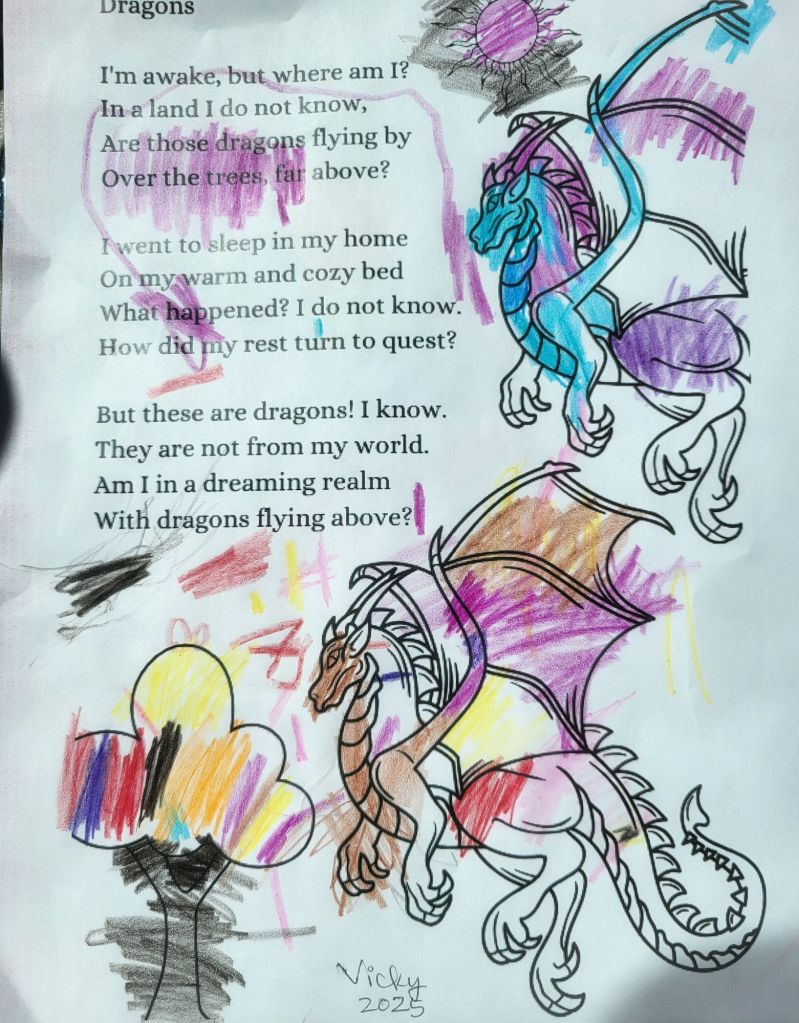 Dragons
I'm awake, but where am I?
In a land I do not know,
Are those dragons flying by
Over the trees, far above?
I went to sleep in my home
On my warm and cozy bed
What happened? I do not know.
How did my rest turn to quest?
But these are dragons! I know.
They are not from my world.
Am I in a dreaming realm
With dragons flying above?
Vicky
2025